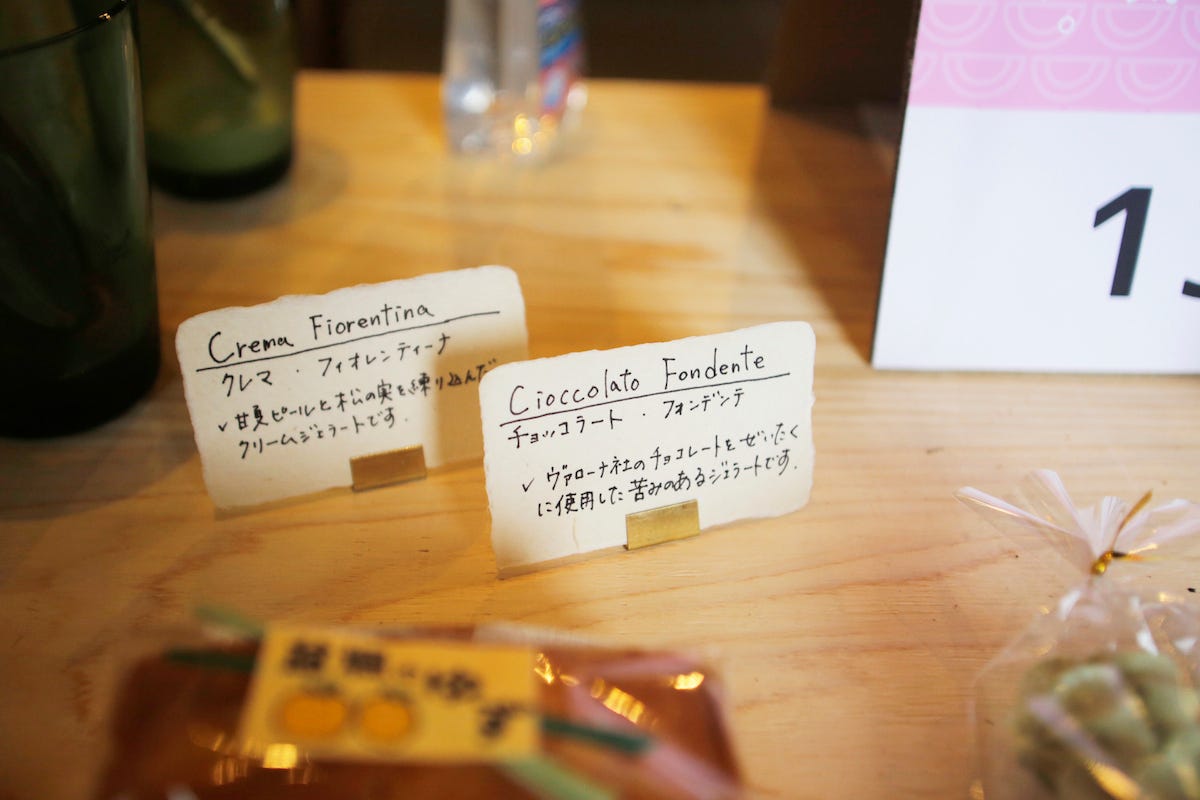 Crema Fiorentina
クレマ ・ フィオレンティーナ
✓ 甘夏ピールと松の実を練り込んだ
クリームジェラートです.
Cioccolato Fondente
チョッコラート ・ フォンデンテ
✓ ヴァローナ社のチョコレートをぜいたく
に使用した苦みのあるジェラートです.
1